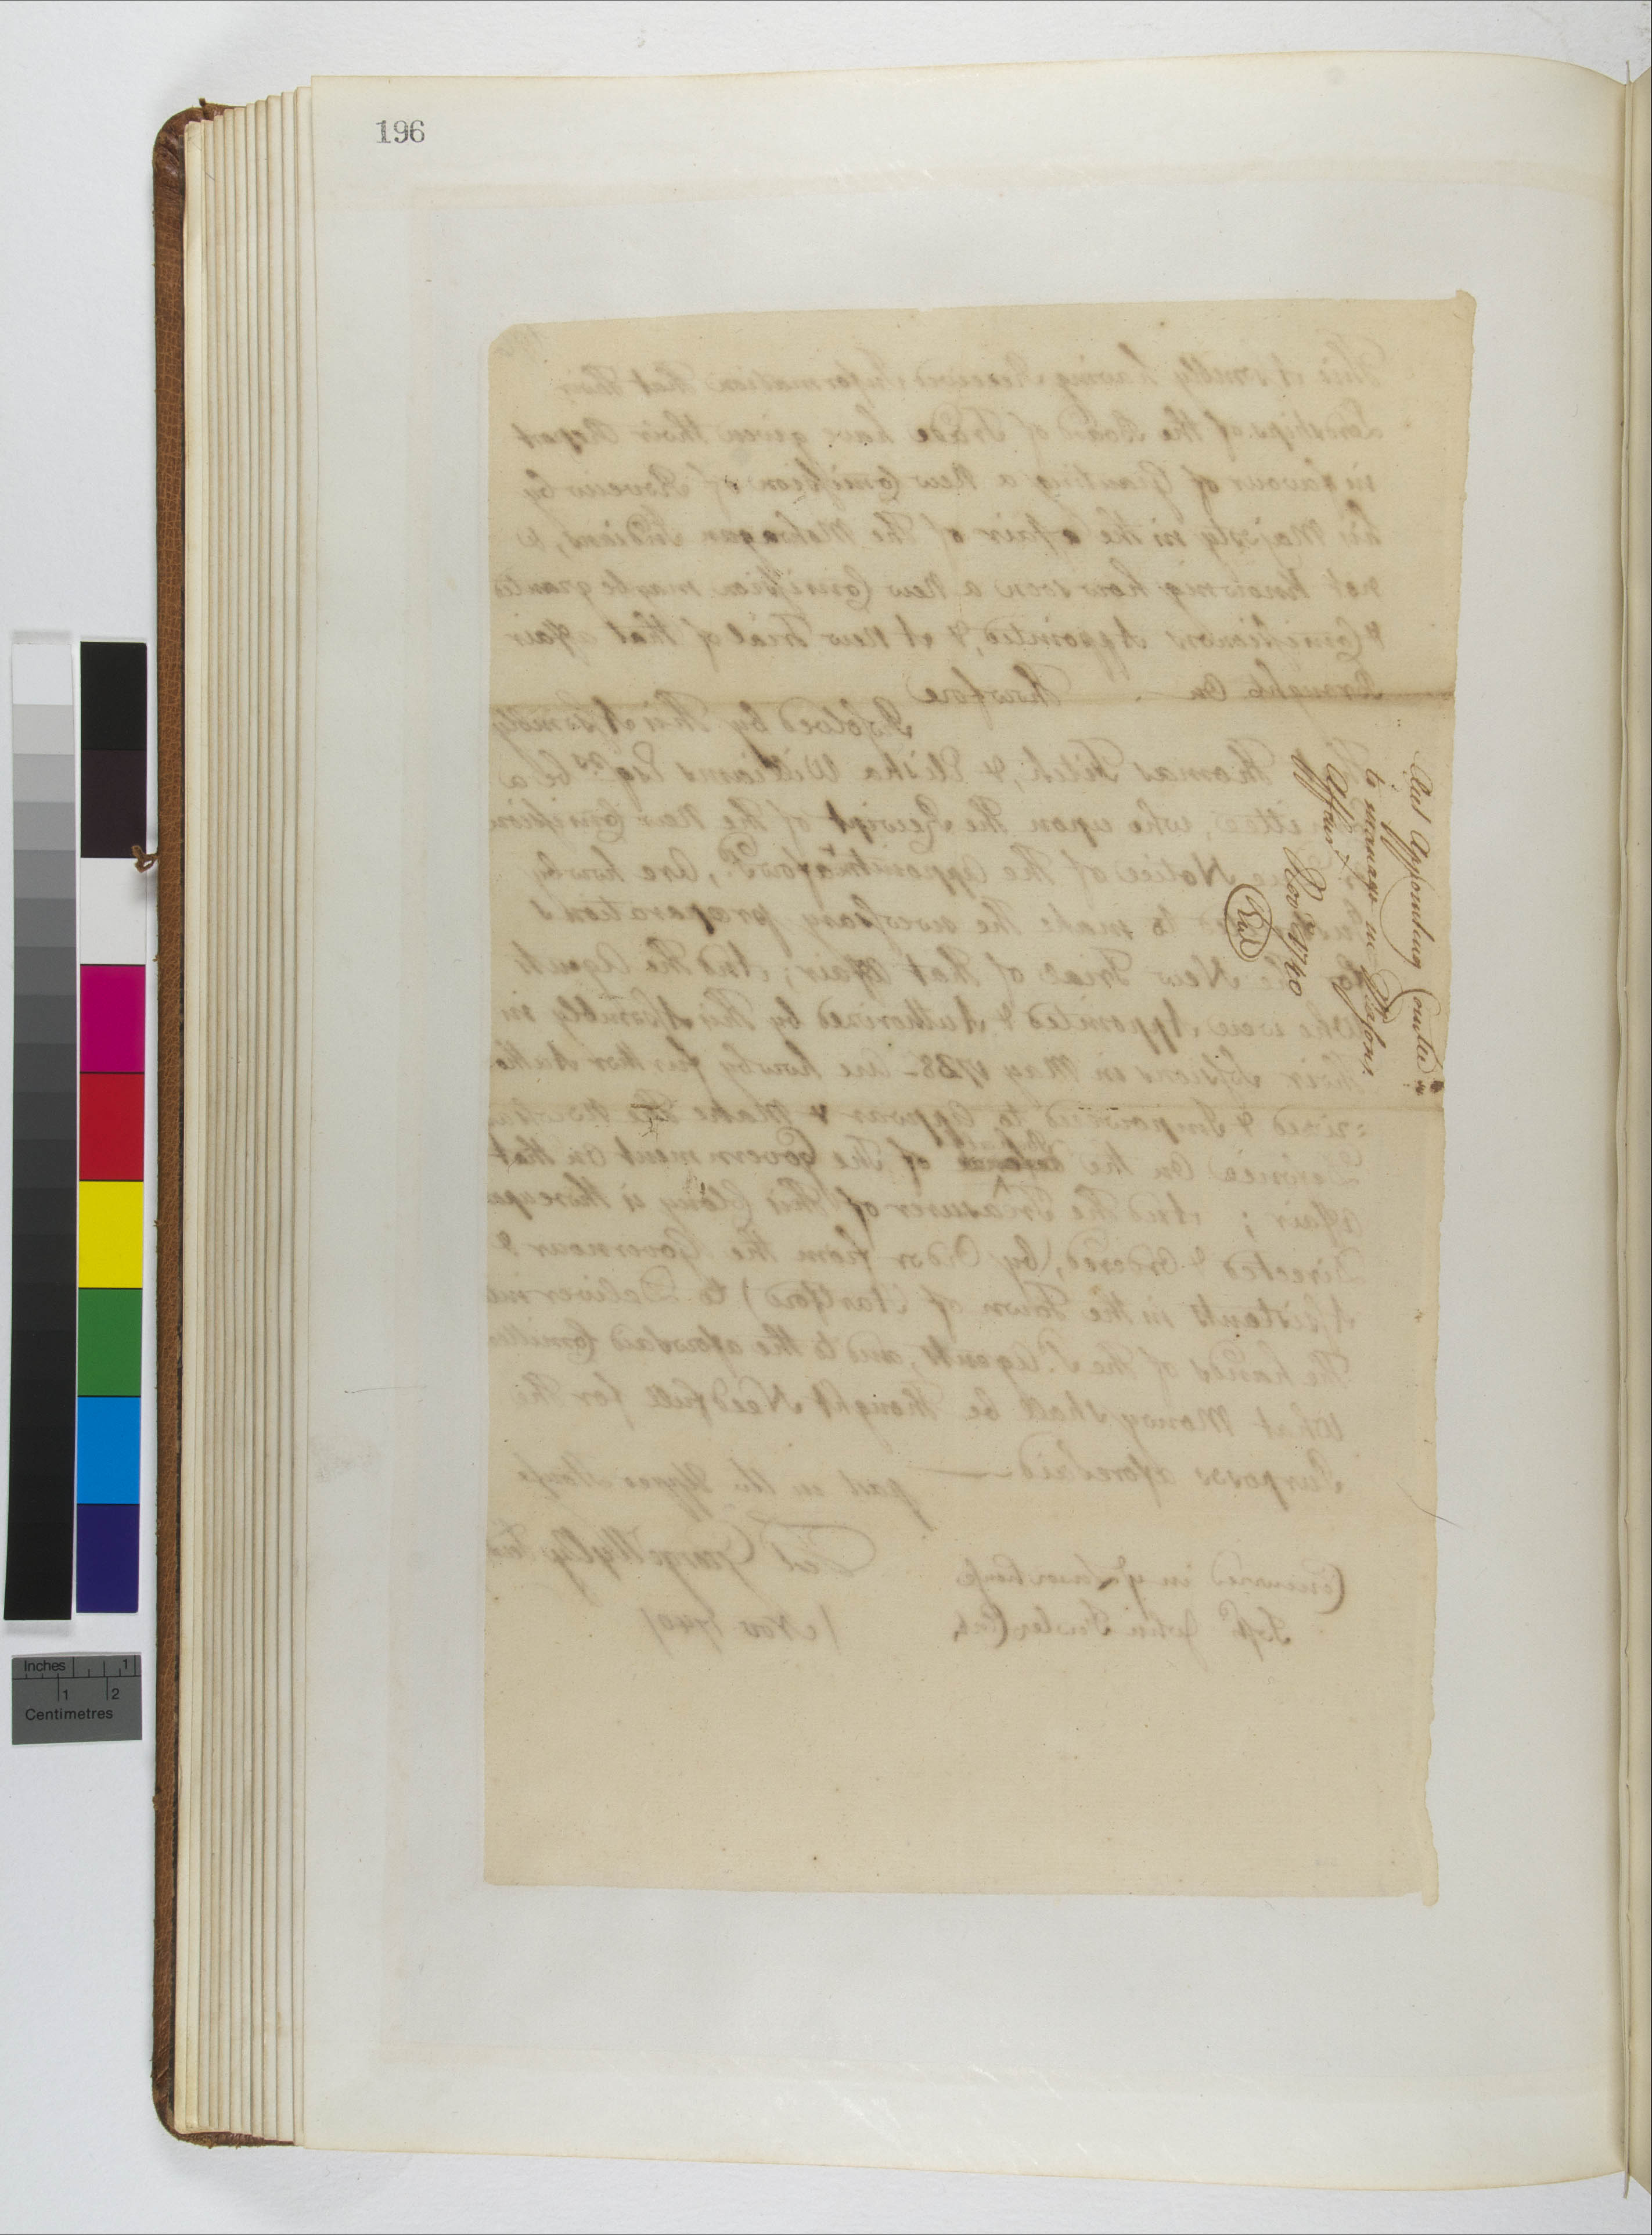 196
Act Appointing Comtee
to manage in Masons
Affair
Novr 1740
Ent
This Assembly having Received Information that Their
Lordships of the Board of Trade have given their Report
in favour of Granting a New Comission of Review by
his Majesty in the affair of The Mohegan Indians, &
not knowing how soon a New Comission may be granted
& Comissioners Appointed, & A New Trial of that affair
Brought On Therefore
Resolved by This Assembly
Thomas Fitch, & Elisha Williams Esqrs be a
who upon the Receipt of the New Comission
Notice of the Appointmt aforsd, are hereby
to make the necessary preparations
for the New Trial of that Affair; And the Agents
Who were Appointed & Authorized by This Assembly in
their Sessions in May 1738 - are hereby further Autho-
=rized & Impowered to Appear & Make the
on the of The Government on that
affair; And the Treasurer of This Colony is thereupon
Directed & Ordered, (by Order from the Governour &
Assistants in the Town of Hartford) to Deliver in
The hands of the sd Agents, and to the aforesaid Comittee
What Money shall be thought Needfull for the
Purposes aforesaid
past in the Upper House
Test George Wyllys Secr
Concurred in ye Lower house
Test John Fowler Clerk
Nov 1740
Inches 1
1 2
Centimetres